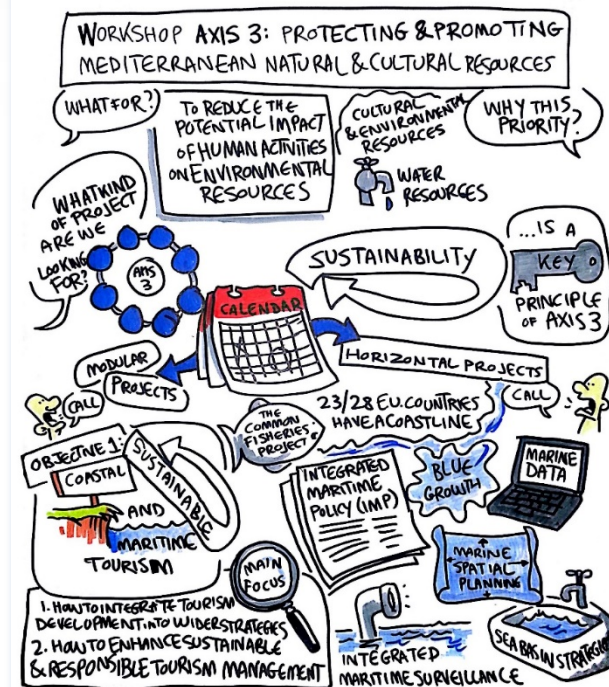 WORKSHOP AXIS 3: PROTECTING & PROMOTING
MEDITERRANEAN NATURAL & CULTURAL RESOURCES
WHAT FOR?
TO REDUCE THE
POTENTIAL IMPACT
OF HUMAN ACTIVITIES
ON ENVIRONMENTAL
RESOURCES
CULTURAL
& ENVIRONMENTAL
RESOURCES
WATER
RESOURCES
WHY THIS
PRIORITY?
WHAT KIND
OF PROJECT
ARE WE
LOOKING
FOR?
AXIS
3
SUSTAINABILITY
...IS A
KEY
PRINCIPLE
OF AXIS 3
CALENDAR
MODULAR
PROJECTS
CALL
HORIZONTAL PROJECTS
CALL
THE
COMMON
FISHERIES
PROJECT
23/28 E.U. COUNTRIES
HAVE A COASTLINE
OBJECTIVE 1:
COASTAL
AND
MARITIME
TOURISM
SUSTAINABLE
INTEGRATED
MARITIME
POLICY (IMP)
BLUE
GROWTH
MARINE
DATA
MAIN
FOCUS
MARINE
SPATIAL
PLANNING
1. HOW TO INTEGRATE TOURISM
DEVELOPMENT INTO WIDER STRATEGIES
2. HOW TO ENHANCE SUSTAINABLE
& RESPONSIBLE TOURISM MANAGEMENT
INTEGRATED
MARITIME SURVEILLANCE
SEA BASIN STRATEGIES